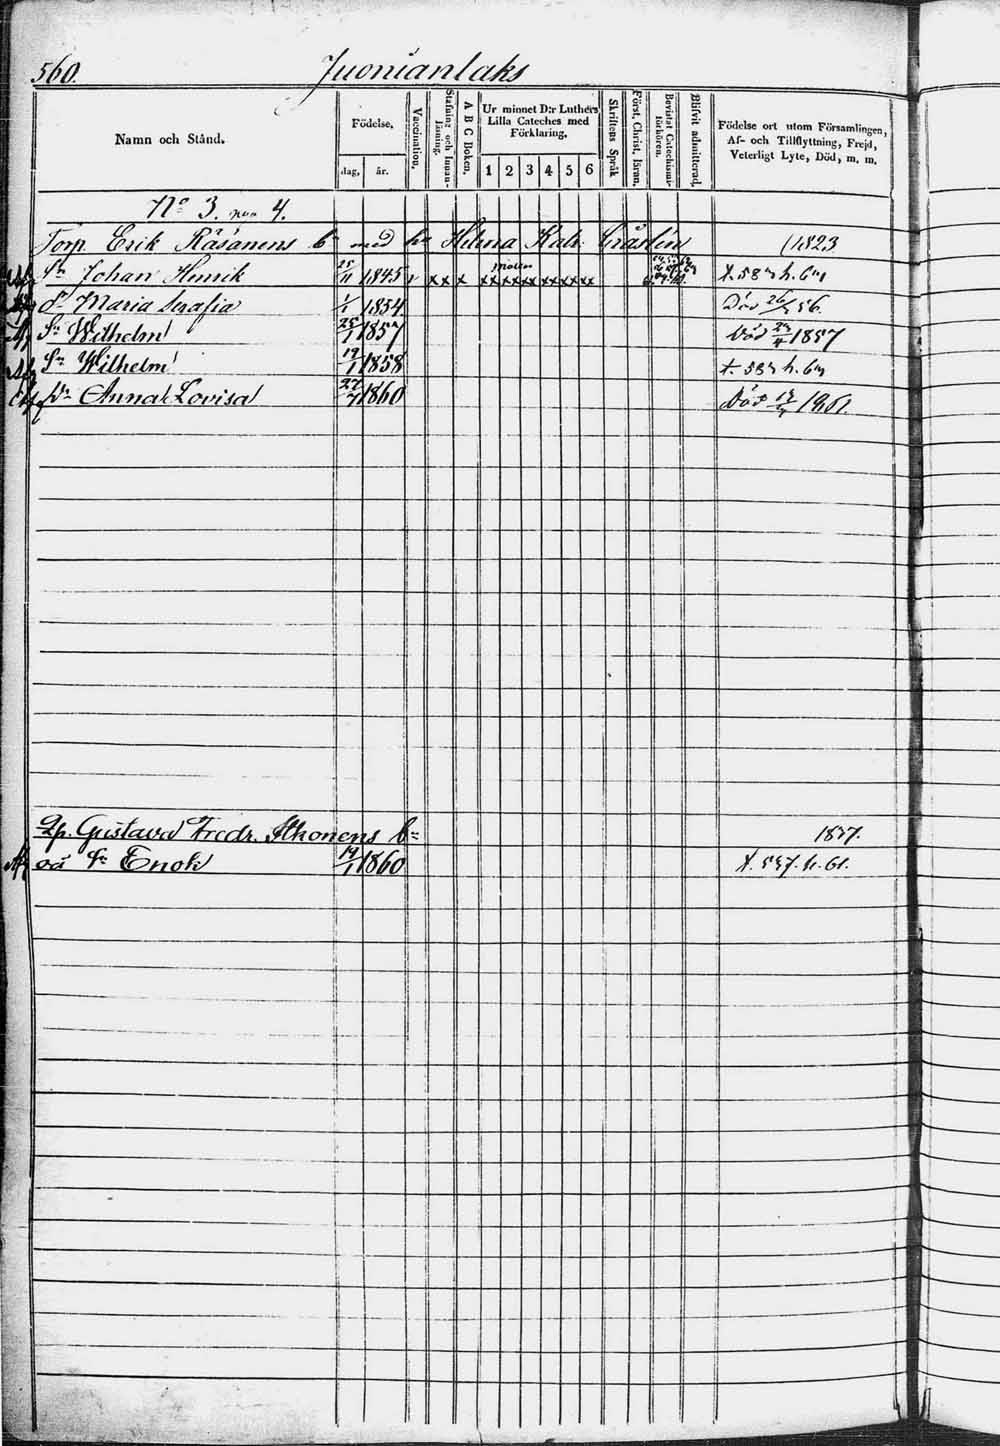 560. Juonianlaks
Namn och Stånd.
Födelse,
dag, år.
Vaccination.
Stafning och Innan-läsning.
A B C Boken.
Ur minnet D:r Luthers
Lilla Cateches med
Förklaring.
1 2 3 4 5 6
Skriftens Språk
Först. Christ. läran.
Bevistat Catechismi-förhören.
Blifvit admitterad.
Födelse ort utom Församlingen,
Af- och Tillflyttning, Frejd,
Veterligt Lyte, Död, m. m.
No 3. nya 4.
Torp. Erik Räsänens b. med h. Helena Katr. 1823
Sn Johan Henrik 25/11 1845 x x x x x x x x x x x x
Dr Maria Serafia 1/1 1854 Död 26/ 56.
Sn Wilhelm 25/1 1857 Död 23/4 1857
Sn Wilhelm 19/1 1858
dr Anna Lovisa 27/7 1860 Död
Gustava Fredr. Ihonens b. 1837.
oä Sn Enok 19/1 1860